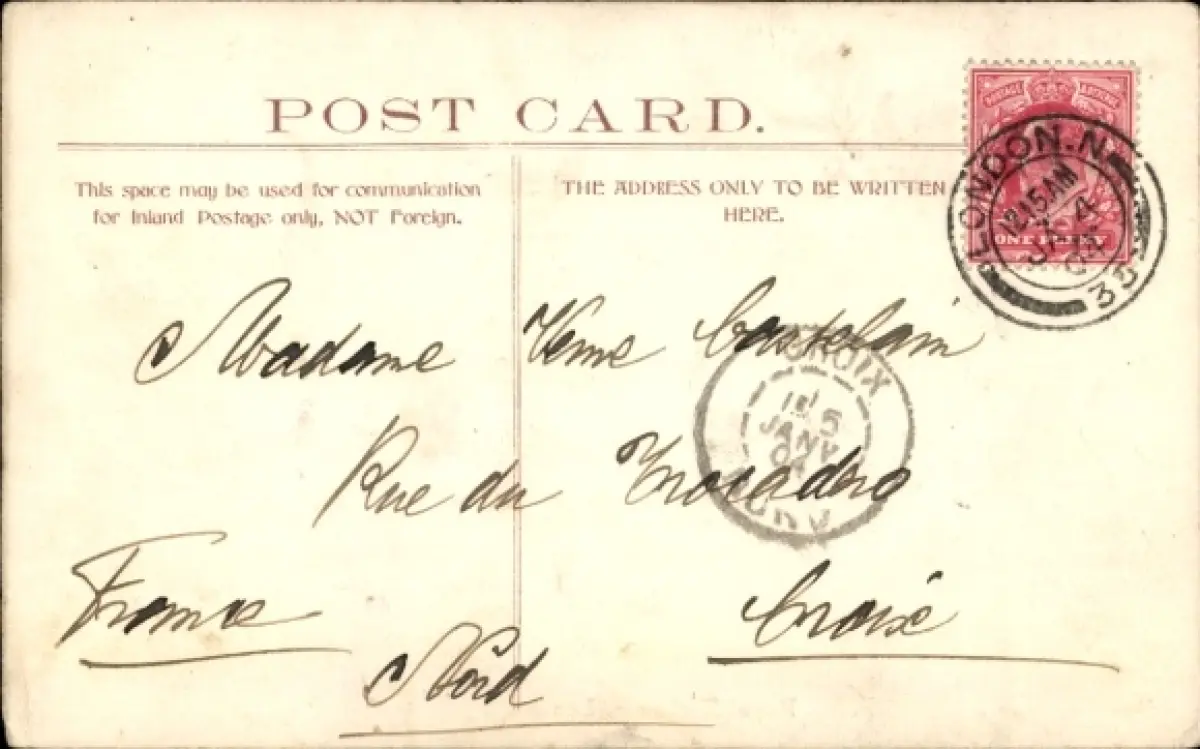 POST CARD.
This space may be used for communication
for Inland Postage only, NOT Foreign.
THE ADDRESS ONLY TO BE WRITTEN
HERE.
POSTAGE REVENUE
ONE PENNY
LONDON.N.
12.15AM
JA 4
04
35
Madame Castelain
CROIX
5
JANV
04
NORD
Rue du Trocadéro
Croix
France
Nord